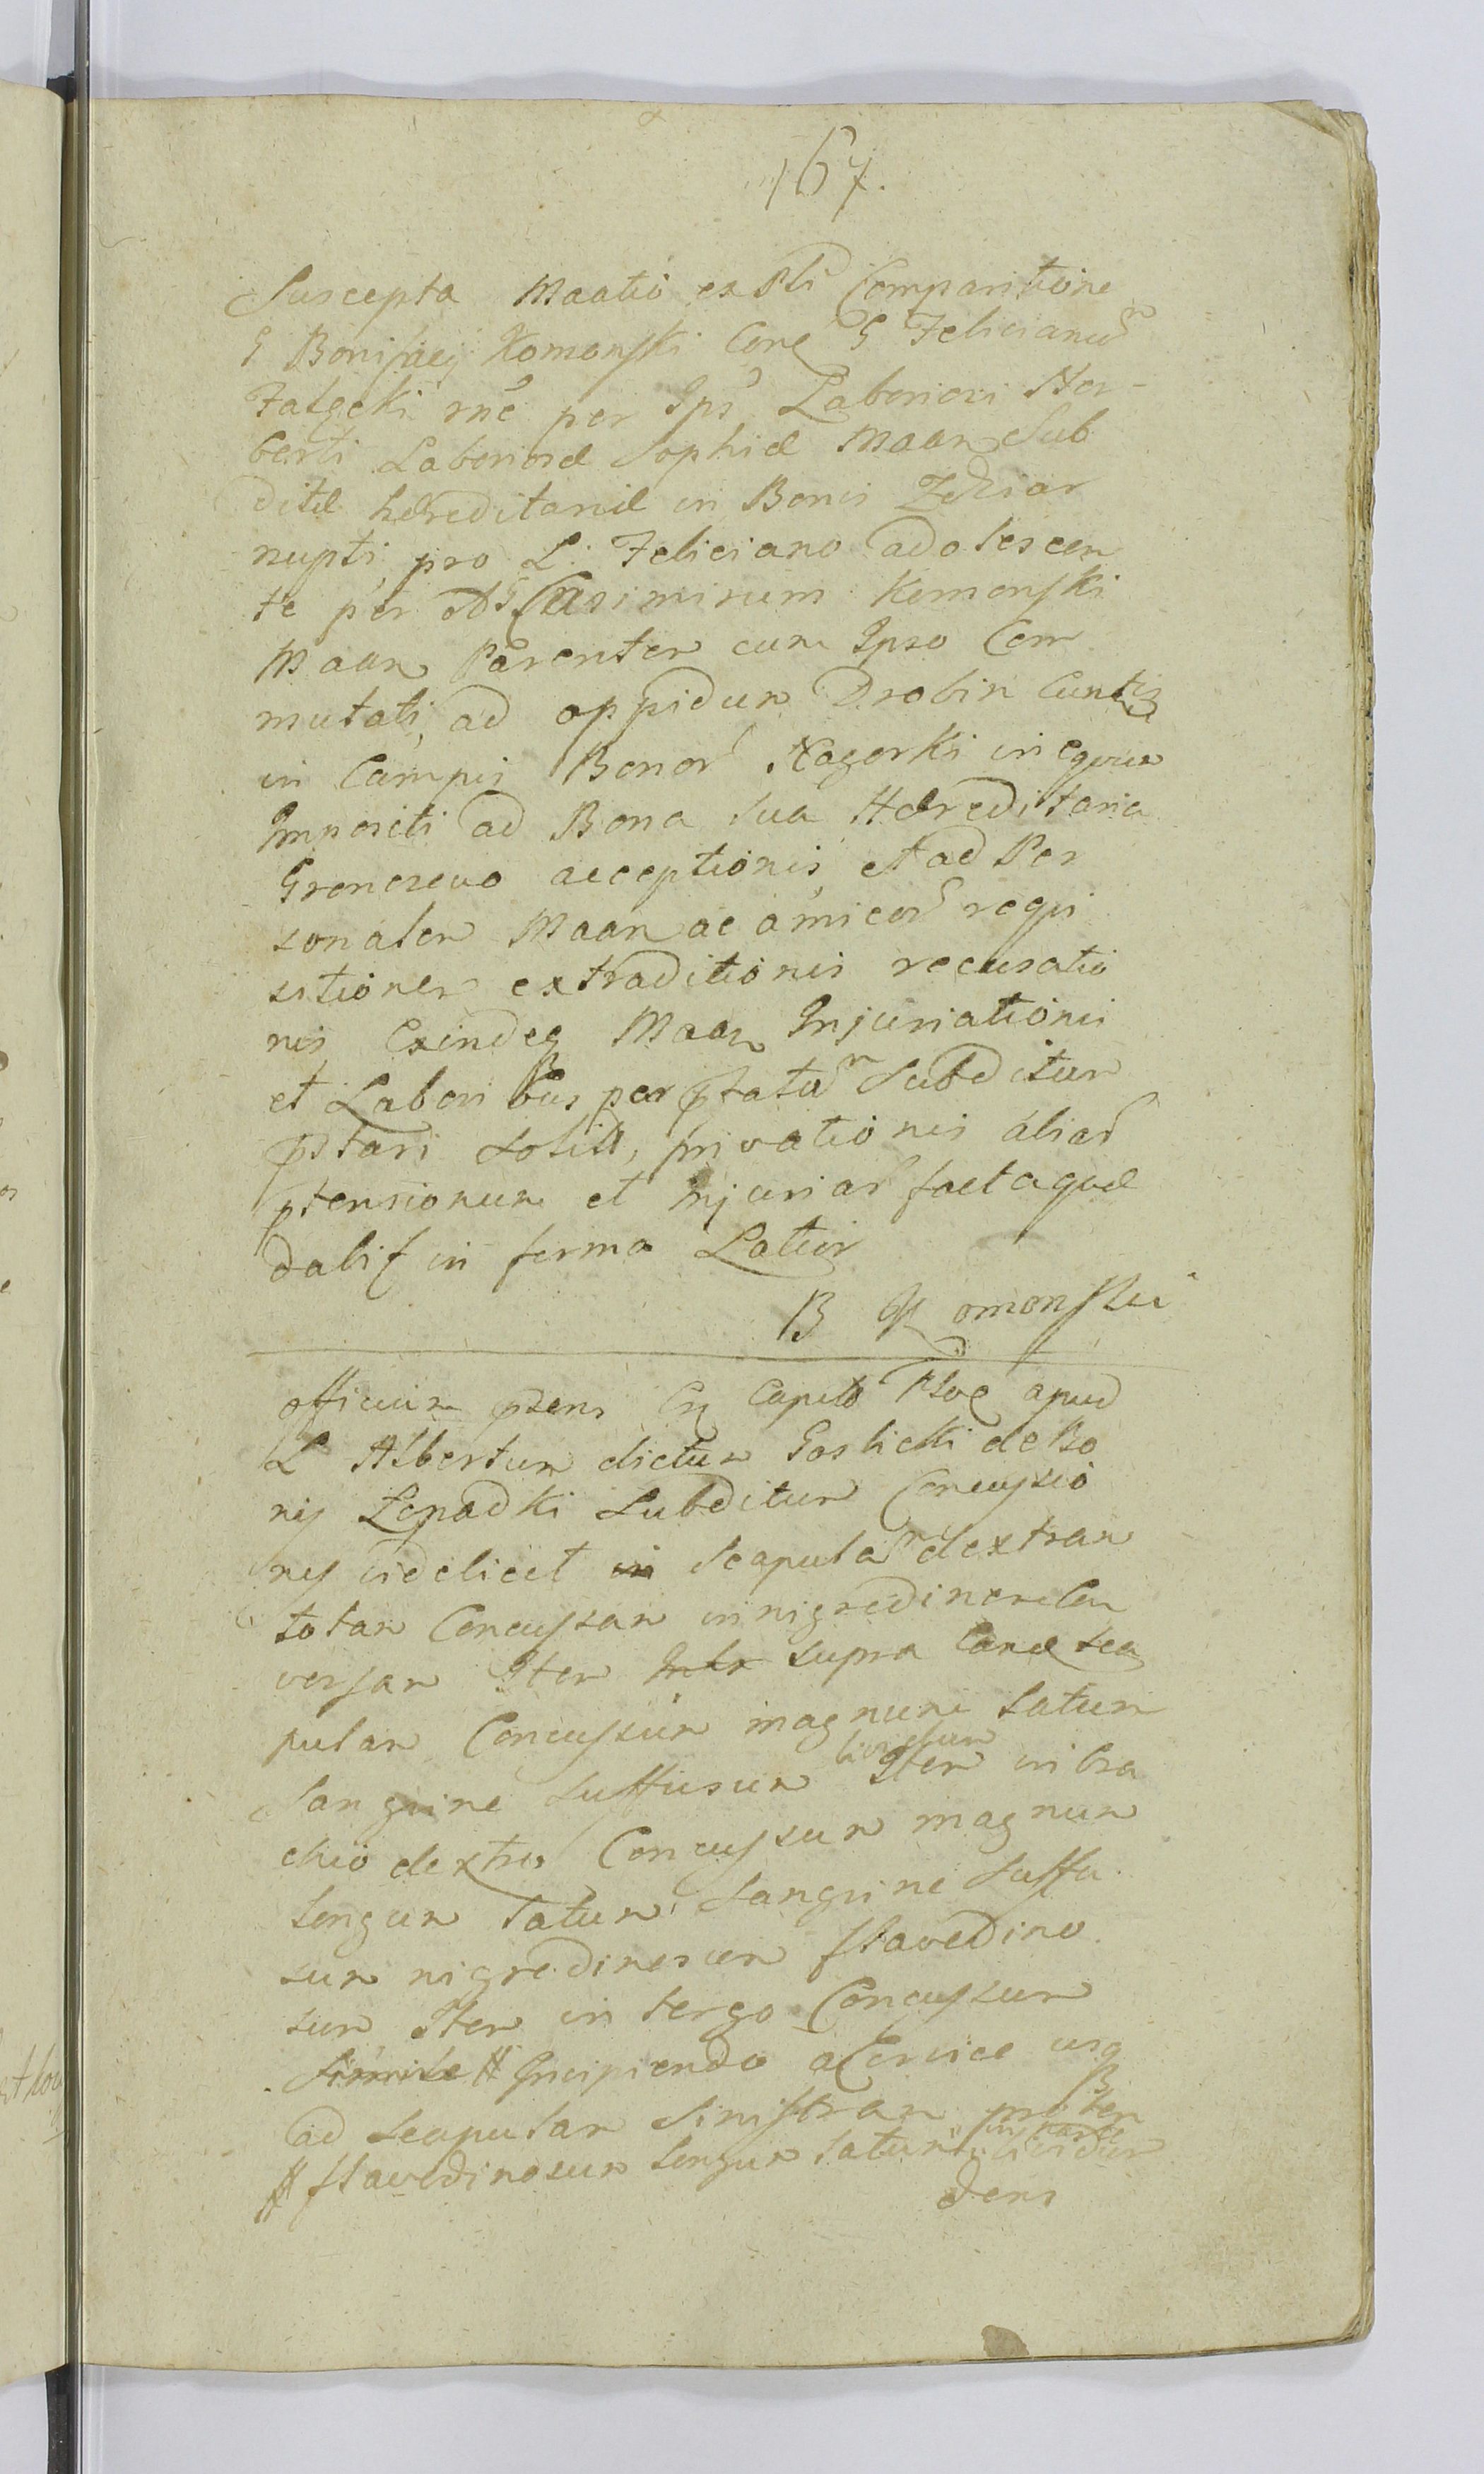 167.
Suscepta Maatio ex Pli Comparitione
G Bonifacij Komonſki Cone G Felicianum
Falgcki rne per Ips Laboriosi Nor-
berti Laboriosæ Sophiæ Maan Sub
ditæ hæreditariæ in Bonis
nupti, pro L. Feliciano adolescen
te per MG Casimirum Komonſki
Maan Parentem cum Ipso Com
mutati, ad oppidum Drobin Euntis
in Campis Bonor Nagorki in equm
Impositi ad Bona sua Hæreditaria
acceptionis, et ad Per
sonalem Maan ac amicor requi
sitionem extraditionis recusatio
nis Exindeq Maan Injuriationis
et Laboribus per ptatum Subditum
pstari solitis, privationis aliar
ptensionum et injuriar factaque
dabit in forma Latius
B Komonſki
officium psens Eq Capito Ploc apud
L Albertum dictum Goslicki de Bo
nis Lepadki Subditum Concuſsio
nes videlicet in Scapulam dextram
totam Concuſsam in nigredinem Con
verſam Item supra Eande sca
pulam Concuſsum magnum latum
lividum
Sanguine suffusum Item in bra
chio dextro Concuſsum magnum
longum latum Sanguine Suffu
sum nigredinescen flavedino
sum Item in tergo Concuſsum
Simile # Incipiendo a Cervice usq
ad Scapulam Siniſtram proten
# flavedinosum longum latum lividum
dens